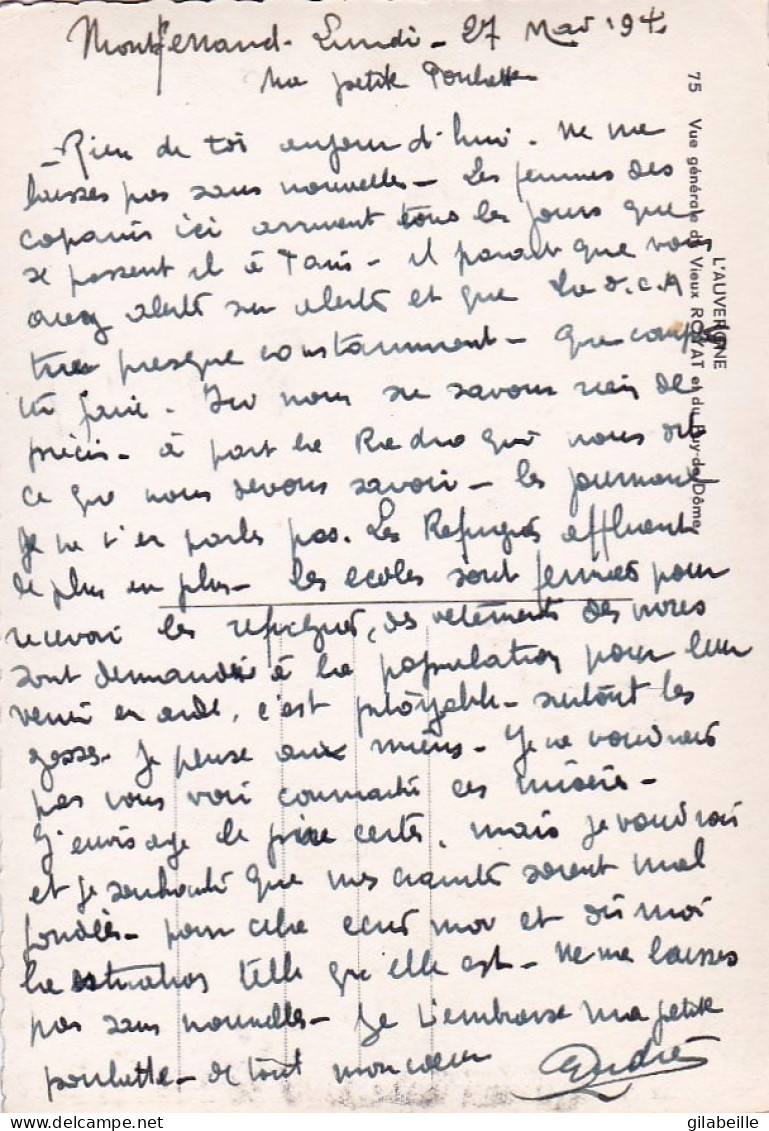 Montferrand - Lundi - 27 Mai 194
Ma petite Poulette
- Rien de toi aujourd'hui. Ne me
laisses pas sans nouvelles - Les femmes des
copains ici arrivent tous les jours que
se passent il à Paris - il parait que vous
avez alerte sur alerte et que la D.C.A
tire presque constamment - Que
tu faire. Ici nous ne savons rien de
précis - à part la Radio qui nous dit
ce que nous devons savoir - les journaux
je ne t'en parles pas. Les Refugiés affluent
de plus en plus - les ecoles sont fermées pour
recevoir les refugiés, des vetements des vivres
sont demandés à la population pour leur
venir en aide, c'est pitoyable - surtout les
gosses. Je pense aux miens - Je ne voudrais
pas vous voir connaitre ces misères -
J'envisage le pire certes, mais je voudrais
et je souhaite que mes craintes soient mal
fondées - pour cela ecris moi et dis moi
la situation telle que elle est - Ne me laisses
pas sans nouvelles - Je t'embrasse ma petite
poulette - de tout mon coeur
André
L'AUVERGNE
75 Vue générale du Vieux ROYAT et du Puy-de-Dôme
gilabeille